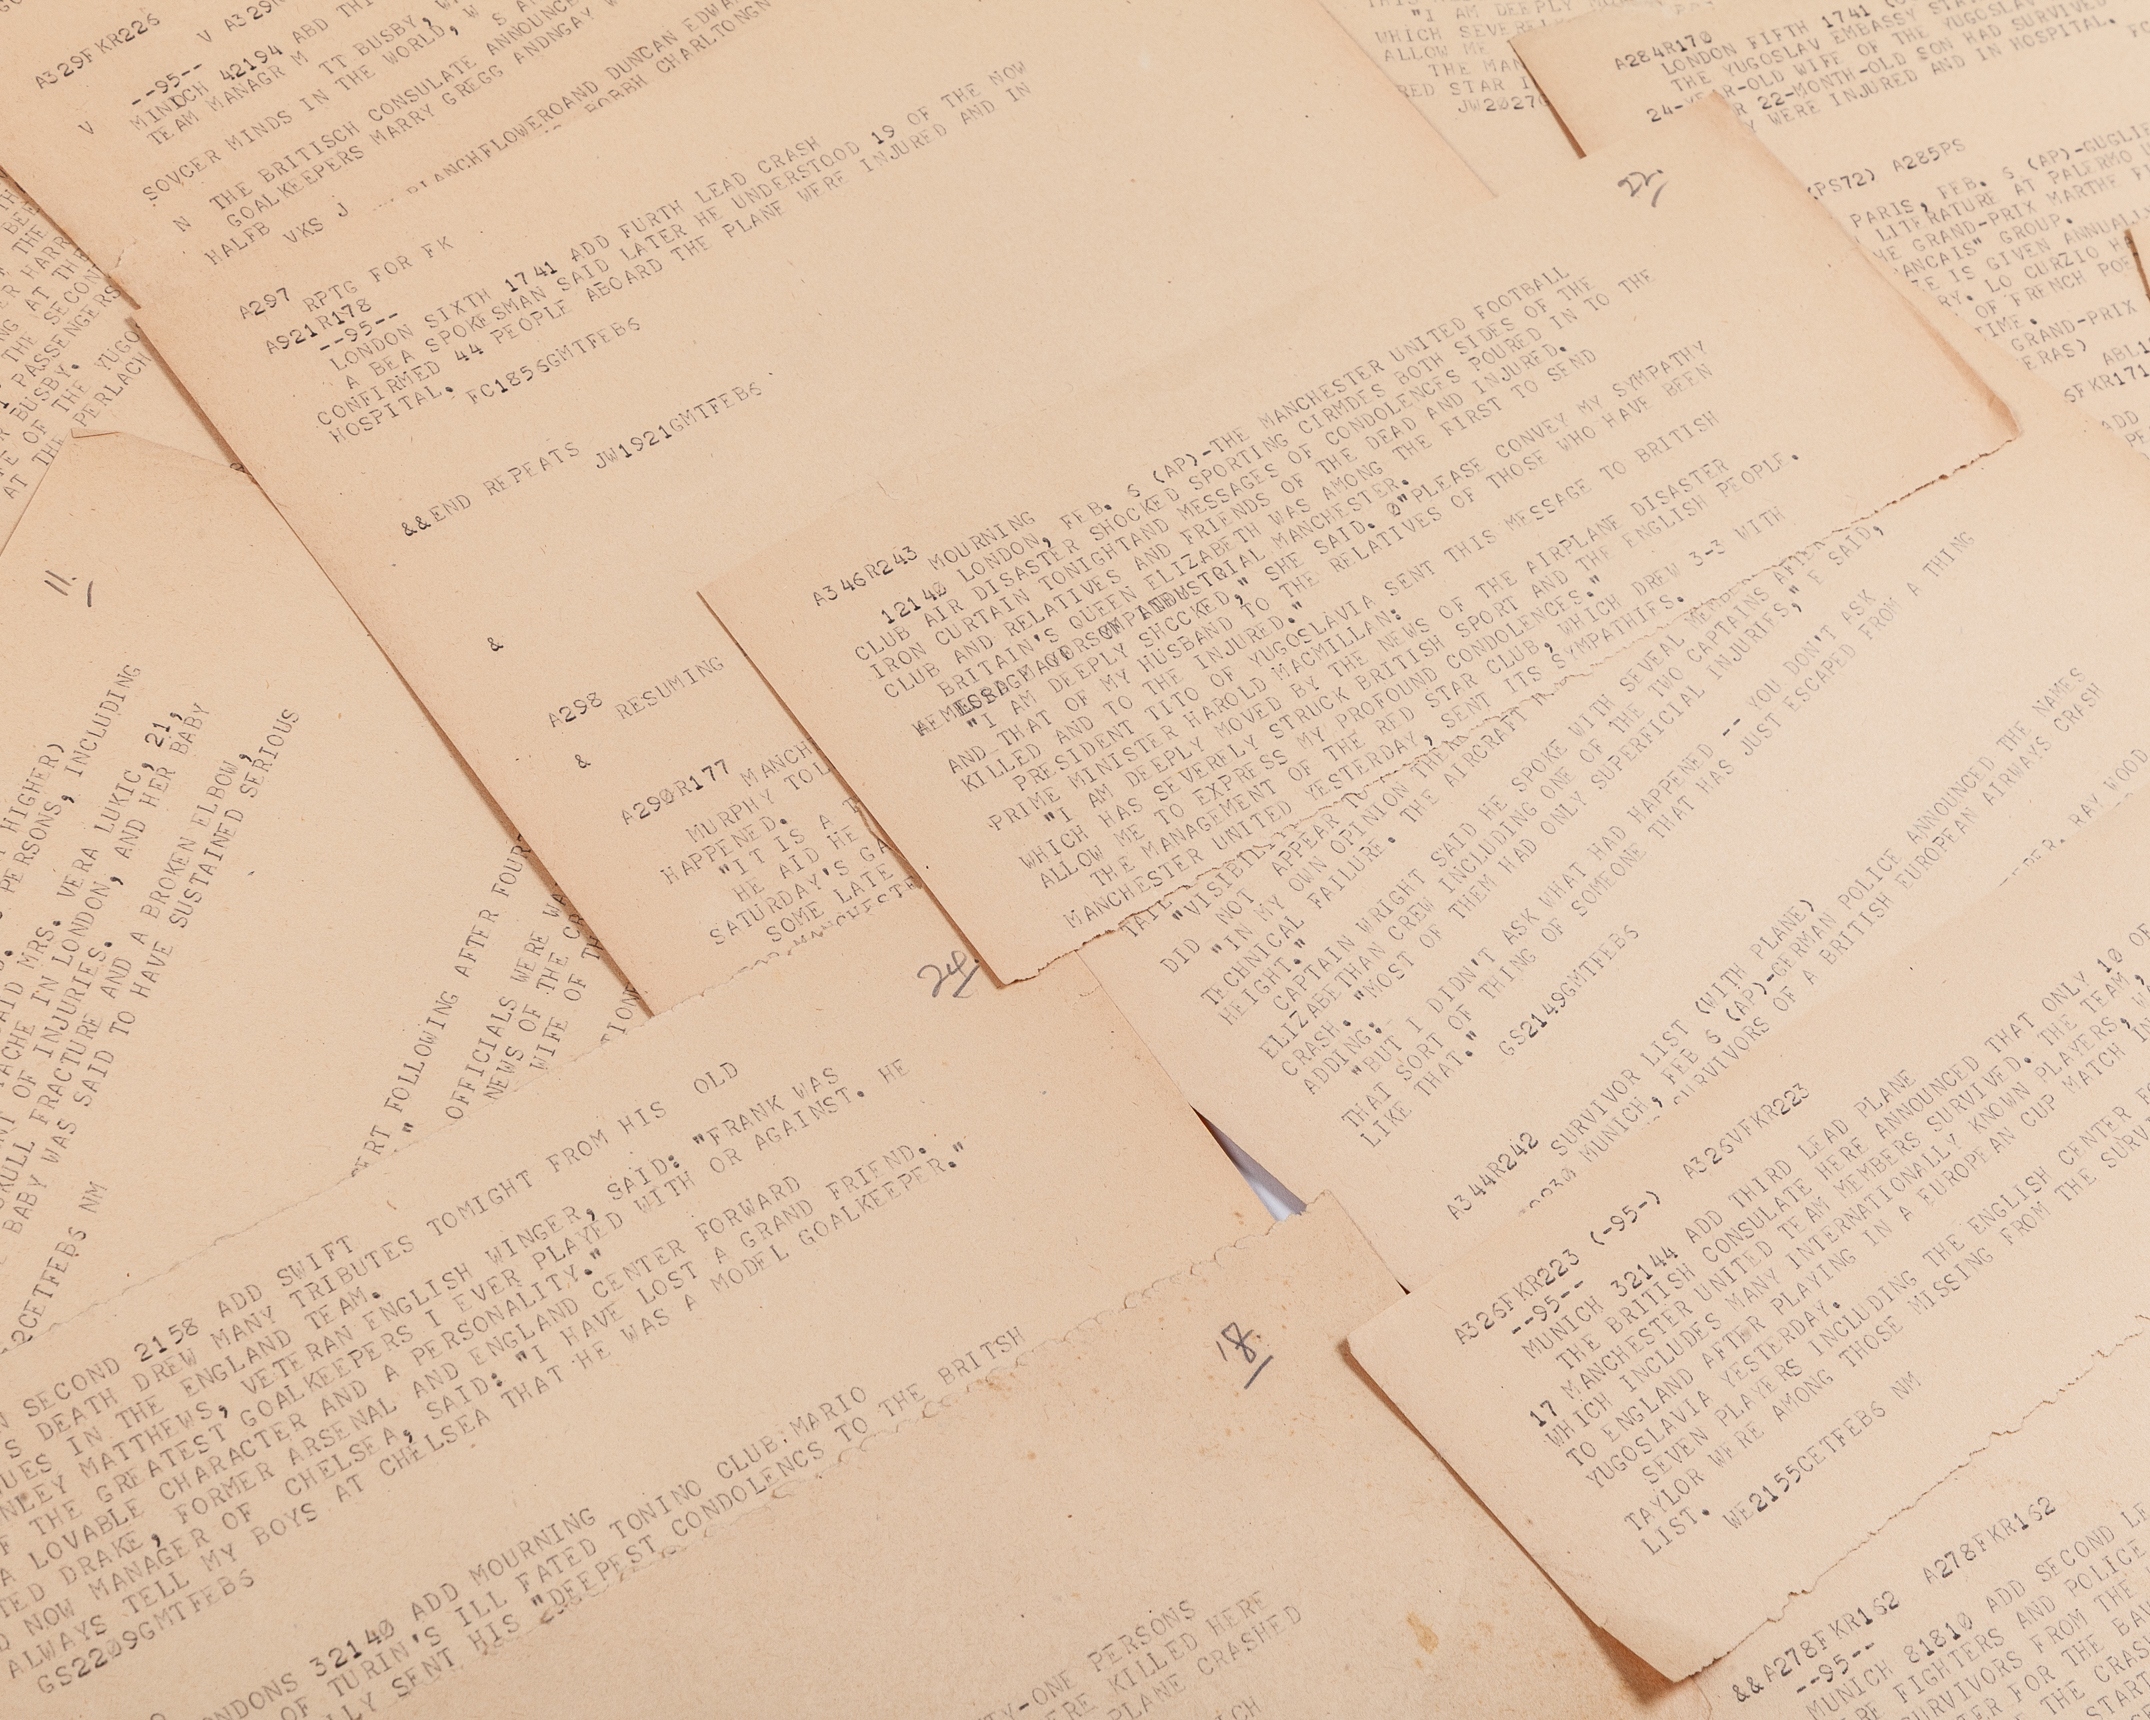 A329FKR226
V A329
--95--
V MINDCH 42194 ABD
TEAM MANAGR M TT BUSBY,
SOVCER MINDS IN THE WORLD,
N THE BRITISCH CONSULATE ANNOUNCE
GOALKEEPERS MARRY GREGG ANDNGAY
HALFB BLANCHFLOWEROAND DUNCAN
VKS J BORBH CHARLTONGN
A297 RPTG FOR FK
AS21R178
--95--
LONDON SIXTH 1741 ADD FURTH LEAD CRASH
A BEA SPOKESMAN SAID LATER HE UNDERSTOOD 19 OF THE NOW
CONFIRMED 44 PEOPLE ABOARD THE PLANE WERE INJURED AND IN
HOSPITAL.
FC185SGMTFEBS
&&END REPEATS JW1921GMTFEBS
&
A298 RESUMING
&
A290R177
MANCH
MURPHY TOL
HAPPENED.
"IT IS A
HE AID HE
SATURDAY'S GA
SOME LATE
"I AM DEEPLY
WHICH SEVERE
ALLOW ME
THE MAN
RED STAR
JW2027G
A284R170
LONDON FIFTH 1741
THE YUGOSLAV EMBASSY
24-YEAR-OLD WIFE OF THE YUGOSLAV
R 22-MONTH-OLD SON HAD SURVIVED
Y WERE INJURED AND IN HOSPITAL.
(PS72) A285PS
PARIS, FEB. S (AP)-GUGLIE
LITERATURE AT PALERMO
HE GRAND-PRIX MARTHE
ANCAIS" GROUP.
E IS GIVEN ANNUALLY
RY. LO CURZIO
OF FRENCH POE
TIME.
GRAND-PRIX
ERAS)
22.
A346R243
MOURNING
12140 LONDON, FEB. S (AP)-THE MANCHESTER UNITED FOOTBALL
CLUB AIR DISASTER SHOCKED SPORTING CIRMDES BOTH SIDES OF THE
IRON CURTAIN TONIGHTAND MESSAGES OF CONDOLENCES POURED IN TO THE
CLUB AND RELATIVES AND FRIENDS OF THE DEAD AND INJURED.
BRITAIN'S QUEEN ELIZABETH WAS AMONG THE FIRST TO SEND
INDUSTRIAL MANCHESTER.
"I AM DEEPLY SHCCKED," SHE SAID. 0"PLEASE CONVEY MY SYMPATHY
AND THAT OF MY HUSBAND TO THE RELATIVES OF THOSE WHO HAVE BEEN
KILLED AND TO THE INJURED."
PRESIDENT TITO OF YUGOSLAVIA SENT THIS MESSAGE TO BRITISH
PRIME MINISTER HAROLD MACMILLAN:
"I AM DEEPLY MOVED BY THE NEWS OF THE AIRPLANE DISASTER
WHICH HAS SEVERELY STRUCK BRITISH SPORT AND THE ENGLISH PEOPLE.
ALLOW ME TO EXPRESS MY PROFOUND CONDOLENCES."
THE MANAGEMENT OF THE RED STAR CLUB, WHICH DREW 3-3 WITH
MANCHESTER UNITED YESTERDAY, SENT ITS SYMPATHIFS.
"VISIBILITY
DID NOT APPEAR TO
"IN MY OWN OPINION THE AIRCRAFT
TECHNICAL FAILURE.
HEIGHT."
CAPTAIN WRIGHT SAID HE SPOKE WITH SEVERAL MEMBE
ELIZABETHAN CREW INCLUDING ONE OF THE TWO CAPTAINS AFTER
CRASH. "MOST OF THEM HAD ONLY SUPERFICIAL INJURIES," E SAID,
ADDING:
"BUT I DIDN'T ASK WHAT HAD HAPPENED -- YOU DON'T ASK
THAT SORT OF THING OF SOMEONE THAT HAS JUST ESCAPED FROM A THING
LIKE THAT."
GS2149GMTFEBS
A344R242
SURVIVOR LIST (WITH PLANE)
MUNICH, FEB S (AP)-GERMAN POLICE ANNOUNCED THE NAMES
SURVIVORS OF A BRITISH EUROPEAN AIRWAYS CRASH
RAY WOOD
11.
HIGHER)
PERSONS, INCLUDING
SAID MRS. VERA LUKIC, 21,
TACHE IN LONDON, AND HER BABY
NT OF INJURIES.
SKULL FRACTURE AND A BROKEN ELBOW,
BABY WAS SAID TO HAVE SUSTAINED SERIOUS
2CETFEBS NM
FOLLOWING AFTER FOUR
OFFICIALS WERE WA
NEWS OF THE CR
WIFE OF TH
24.
SECOND 2158 ADD SWIFT
S DEATH DREW MANY TRIBUTES TOMIGHT FROM HIS OLD
UES IN THE ENGLAND TEAM.
NLEY MATTHEWS, VETERAN ENGLISH WINGER, SAID: "FRANK WAS
F THE GREATEST GOALKEEPERS I EVER PLAYED WITH OR AGAINST. HE
A LOVABLE CHARACTER AND A PERSONALITY."
TED DRAKE, FORMER ARSENAL AND ENGLAND CENTER FORWARD
D NOW MANAGER OF CHELSEA, SAID: "I HAVE LOST A GRAND FRIEND.
ALWAYS TELL MY BOYS AT CHELSEA THAT HE WAS A MODEL GOALKEEPER."
GS2209GMTFEBS
ONDONS 32140 ADD MOURNING
OF TURIN'S ILL FATED TONINO CLUB.MARIO
LLY SENT HIS "DEEPEST CONDOLENCS TO THE BRITSH
18.
TY-ONE PERSONS
ERE KILLED HERE
PLANE CRASHED
A326FKR223 (-95-) A326VFKR223
--95--
MUNICH 32144 ADD THIRD LEAD PLANE
THE BRITISH CONSULATE HERE ANNOUNCED THAT ONLY 10 OF
17 MANCHESTER UNITED TEAM MEMBERS SURVIVED. THE TEAM,
WHICH INCLUDES MANY INTERNATIONALLY KNOWN PLAYERS, WA
TO ENGLAND AFTER PLAYING IN A EUROPEAN CUP MATCH IN
YUGOSLAVIA YESTERDAY.
SEVEN PLAYERS INCLUDING THE ENGLISH CENTER
TAYLOR WERE AMONG THOSE MISSING FROM THE SURVI
LIST.
WE2155CETFEBS NM
&&A278FKR162 A278FKR162
--95--
MUNICH 81810 ADD SECOND LE
RE FIGHTERS AND POLICE
SURVIVORS FROM THE
ER FOR THE BAV
THE CRASH
START